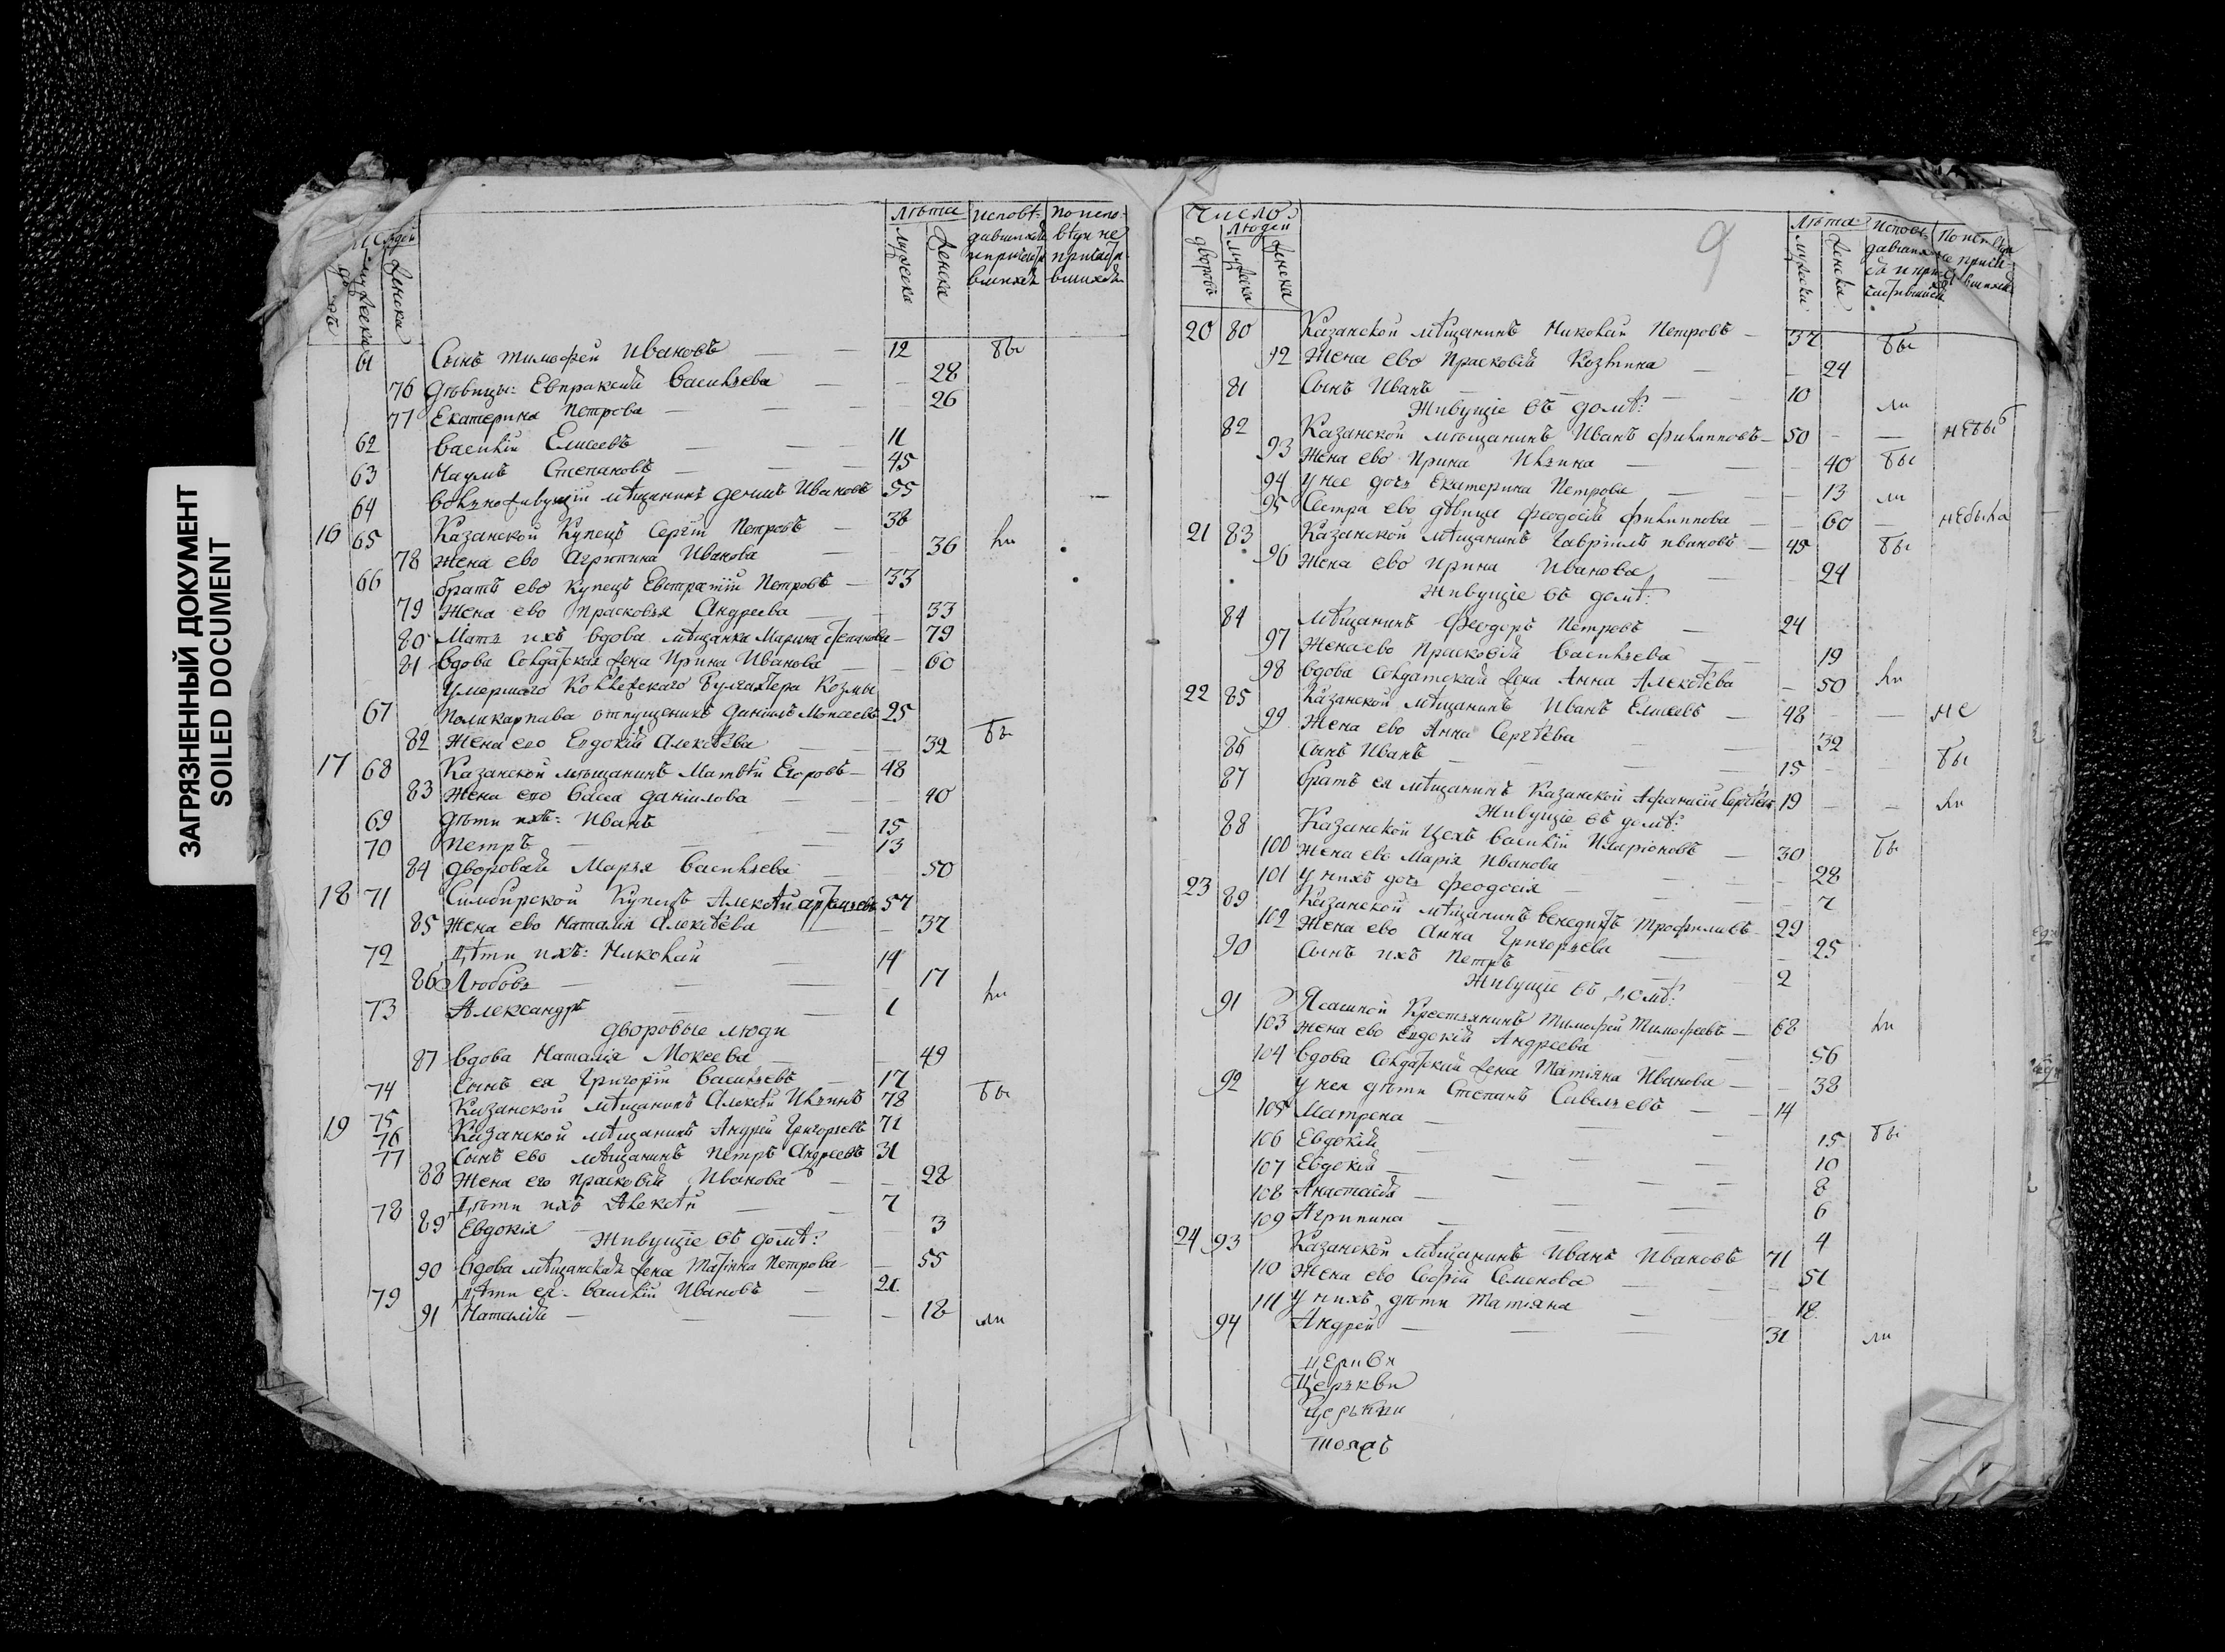 ЗАГРЯЗНЕННЫЙ ДОКУМЕНТ
SOILED DOCUMENT
людей Лѣта Исповѣ- По испо-
мужеска женска мужеска женска давшихся вѣди не
и причаст- причаст-
вшихся вшихся
61 Сынъ Тимофей Ивановъ 12 бы
76 Дѣвицы: Евпраксия Васильева 28
77 Екатерина Петрова 26
62 Василий Елисеевъ 11
63 Наумъ Степановъ 45
64 мѣщанинъ Ивановъ 55
16 65 Казанской Купецъ Сергѣй Петровъ 38
78 Жена ево Агрипина Иванова 36 ли
66 братъ ево купецъ Евстратій Петровъ 33
79 Жена ево Прасковья Андреева 33
80 Мать ихъ вдова мѣщанка Марина Степанова 79
81 вдова Солдатская жена Ирина Иванова 60
Умершаго Бухгалтера Козмы
67 Поликарпова отпущеникъ Даніилъ Моисеевъ 25
82 Жена его Евдокія Алексѣева 32 бы
17 68 Казанской мѣщанинъ Матвѣй Егоровъ 48
83 Жена его Васса Даніилова 40
69 Дѣти ихъ: Иванъ 15
70 Петръ 13
84 Дворовая Марья Васильева 50
18 71 Симбирской Купецъ Алексѣй 57
85 Жена ево Наталія Алексѣева 37
72 Дѣти ихъ: Николай 14
86 Любовь 17
73 Александръ 1 ли
Дворовые люди
87 вдова Наталія Мокеева 49
74 Сынъ ея Григорій Васильевъ 17
75 Казанской мѣщанинъ Алексѣй Ильинъ 78 бы
19 76 Казанской мѣщанинъ Андрей Григорьевъ 71
77 Сынъ ево мѣщанинъ Петръ Андреевъ 31
88 Жена его Прасковія Иванова 28
78 Дѣти ихъ Алексѣй 7
89 Евдокія 3
Живущіе въ домѣ:
90 вдова мѣщанская жена Петрова 55
79 Дѣти ея Василій Ивановъ 21
91 Наталія 18 ли
9
Число Лѣта Исповѣ- По исповѣди
дворовъ людей мужеска женска мужеска женска
20 80 Казанской мѣщанинъ Николай Петровъ 37 бы
92 Жена ево Прасковія Козмина 24
81 Сынъ Иванъ 10 ли
Живущіе въ домѣ:
82 Казанской мѣщанинъ Иванъ Филипповъ 50 небы
93 Жена ево Ирина Ильина 40 бы
94 У нее дочь Екатерина Петрова 13 ли
95 Сестра ево дѣвица Феодосія Филиппова 60 небыла
21 83 Казанской мѣщанинъ Гавріилъ Ивановъ 45 бы
96 Жена ево Ирина Иванова 24
Живущіе въ домѣ:
84 Мѣщанинъ Феодоръ Петровъ 24
97 Жена ево Прасковія Васильева 19
98 вдова Солдатская жена Анна Алексѣева 50 ли
22 85 Казанской мѣщанинъ Иванъ Елисеевъ 48 не
99 Жена ево Анна Сергѣева 32
86 Сынъ Иванъ 15 бы
87 братъ ея мѣщанинъ Казанской Афанасій Сергѣевъ 19 ли
Живущіе въ домѣ:
88 Казанской Цехъ Василій Иларіоновъ 30 бы
100 Жена ево Марія Иванова 28
101 У нихъ дочь Феодосія 7
23 89 Казанской мѣщанинъ Венедиктъ Трофимовъ 29
102 Жена ево Анна Григорьева 25
90 Сынъ ихъ Петръ 2
Живущіе въ домѣ:
91 Ясашной Крестьянинъ Тимофей Тимофеевъ 68 ли
103 Жена ево Евдокія Андреева 56
104 вдова Солдатская жена Татіяна Иванова 38
92 у нея дѣти Степанъ Савельевъ 14
105 Матрена 15 бы
106 Евдокія 10
107 Евдокія 8
108 Анастасія 6
109 Агрипина 4
24 93 Казанской мѣщанинъ Иванъ Ивановъ 71
110 Жена ево Софія Семенова 51
111 У нихъ дѣти Татіяна 18
94 Андрей 31 ли
Церкви
Церькви